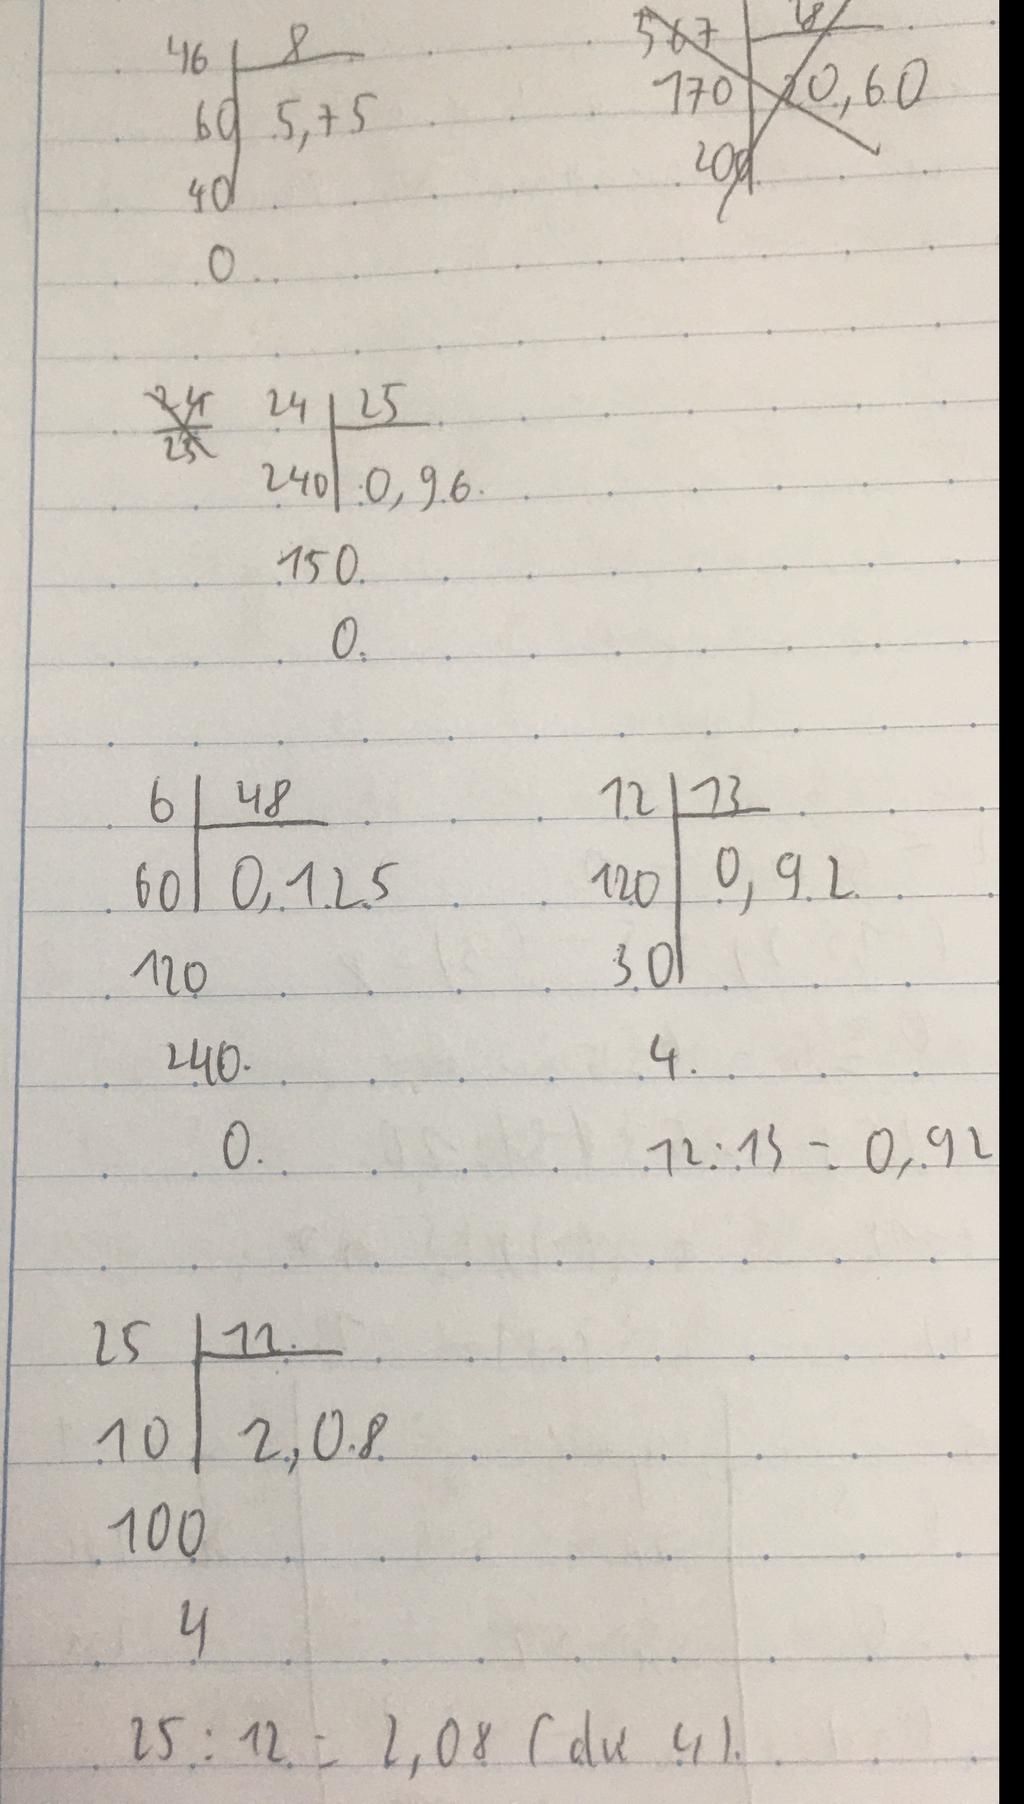 46 8
60 5,75
40
0
567 28
170 20,60
200
24 25
24 25
240 0,96
150
0
6 48
60 0,125
120
240
0
12 13
120 0,92
30
4
12:13 = 0,92
25 12
10 2,08
100
4
25 : 12 = 2,08 (dư 4)